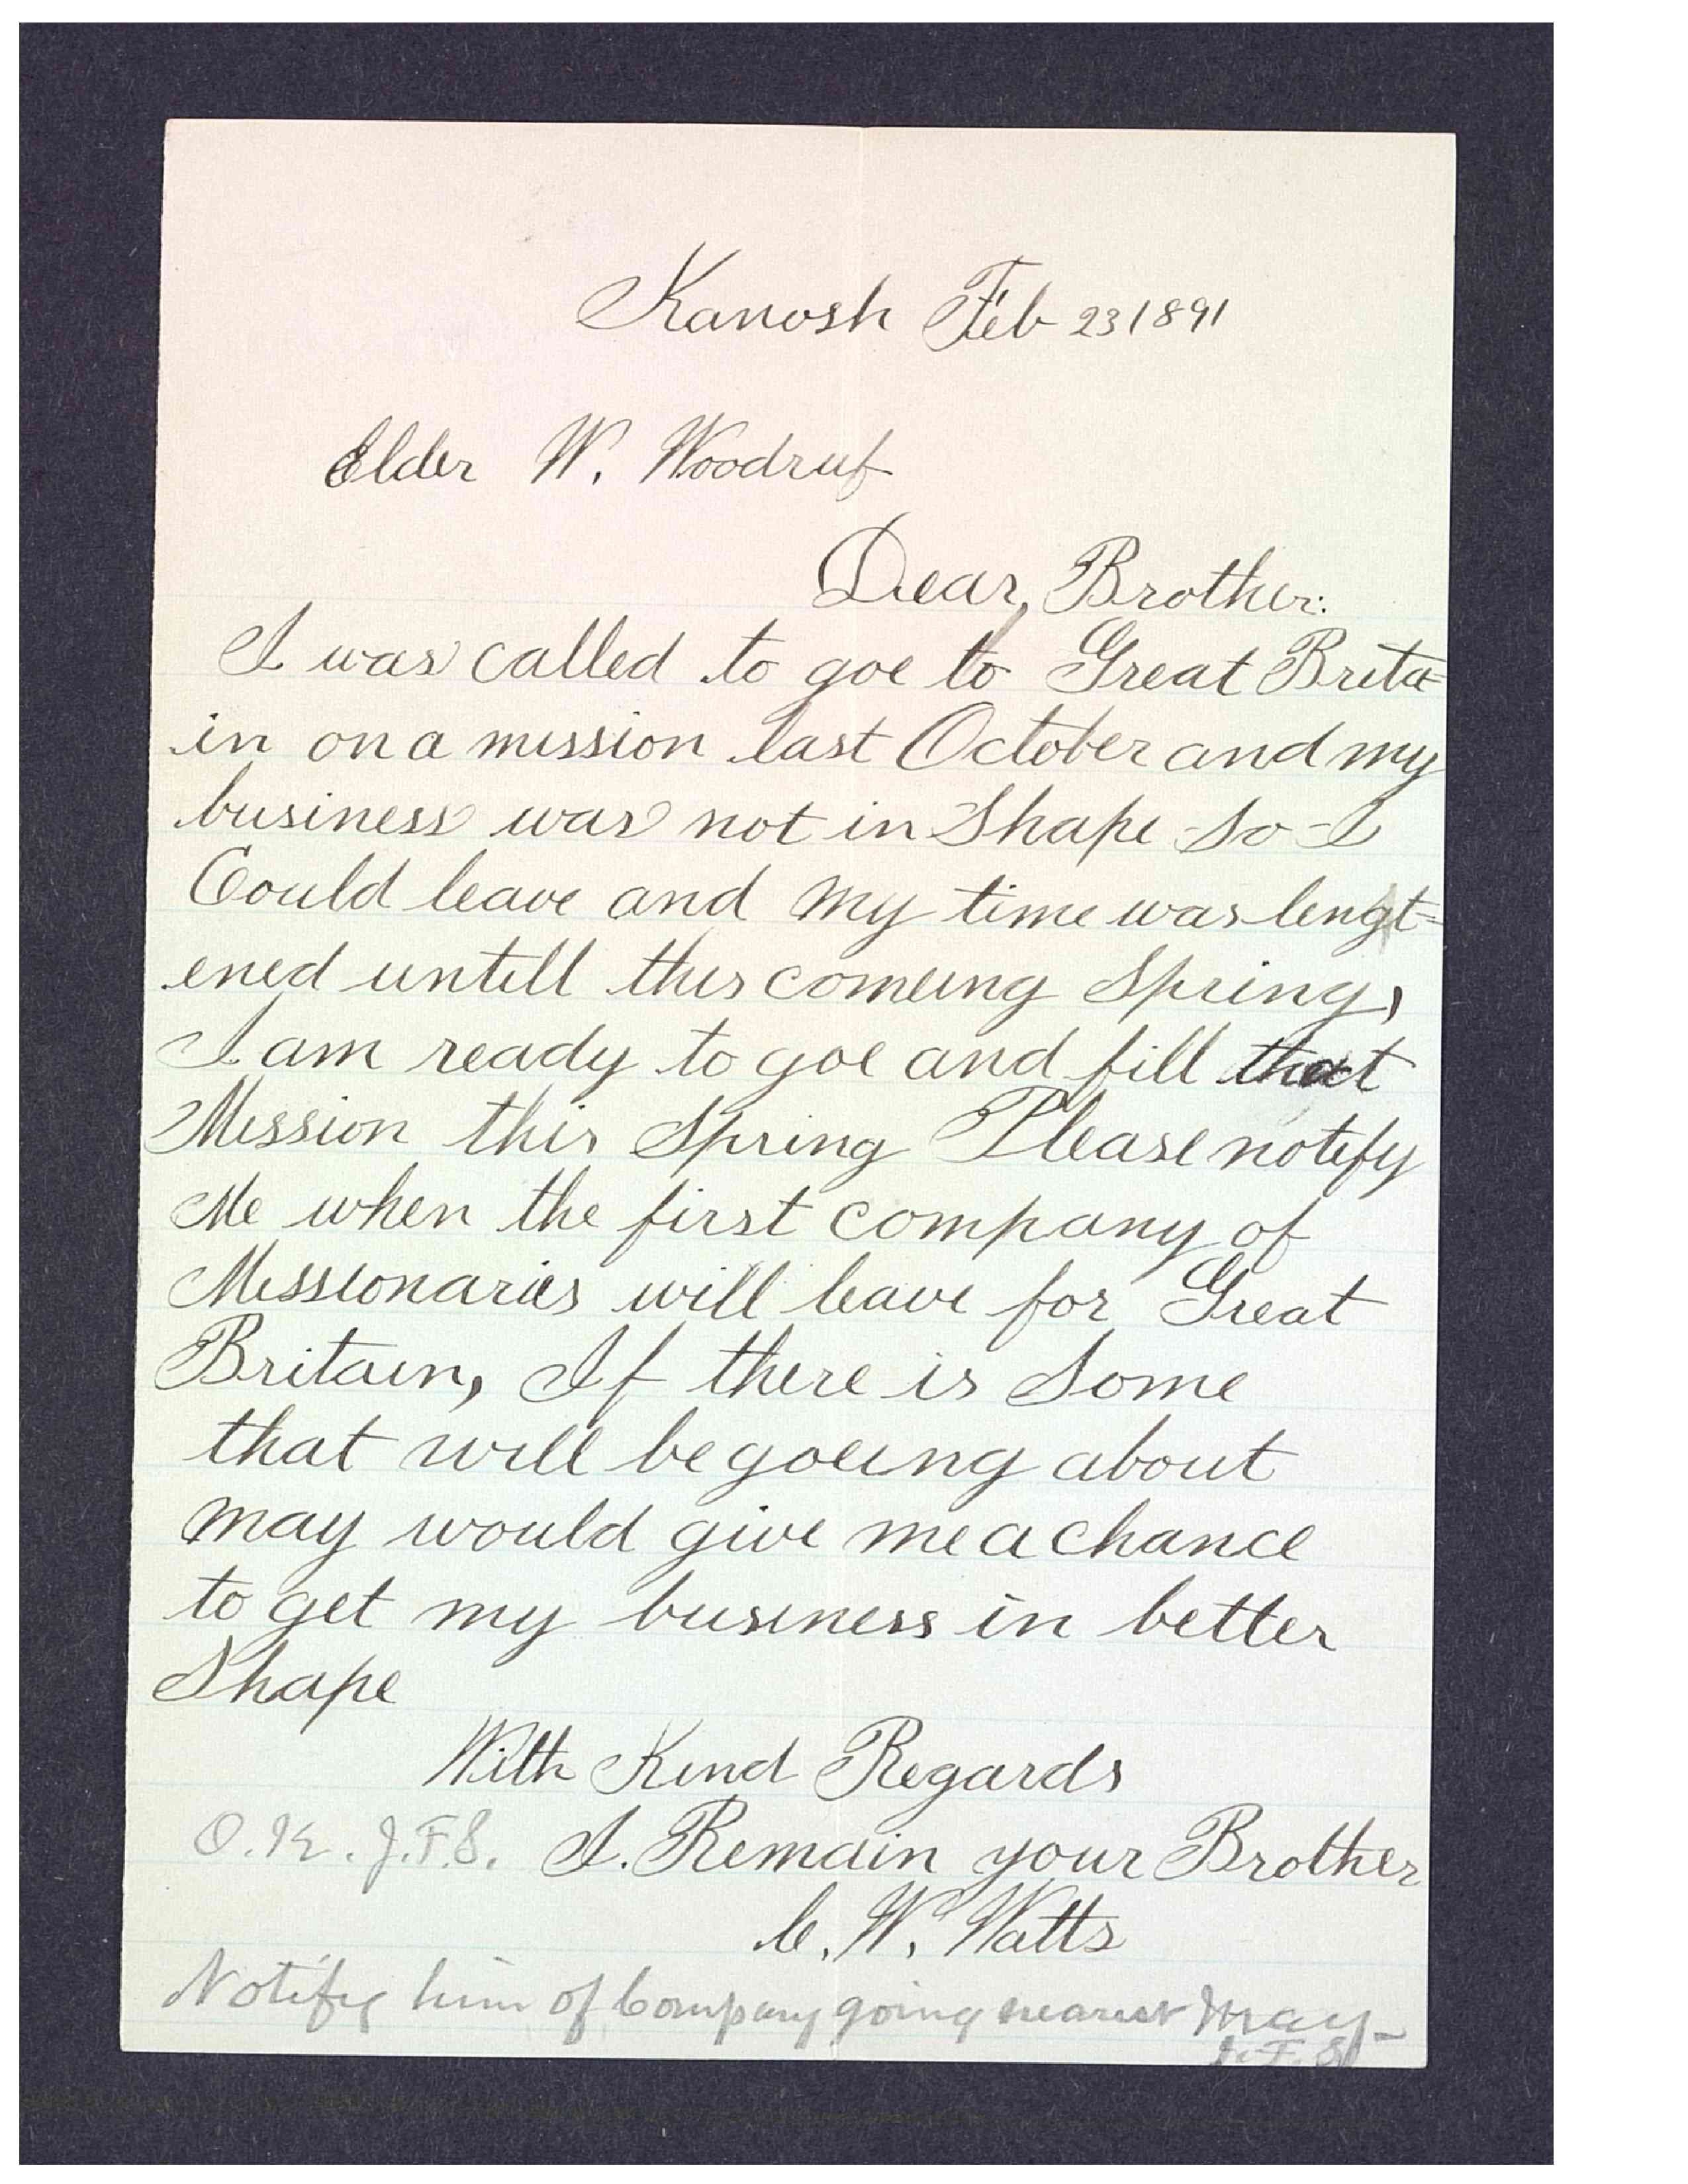 Kanosh Feb 23 1891
Elder W. Woodruf
Dear, Brother:
I was called to goe to Great Brita=
in on a mission last October and my
business was not in Shape so I
Could leave and my time was lengt=
ened untill this comeing Spring,
I am ready to goe and fill that
Mission this Spring Please notify
Me when the first company of
Missionaries will leave for Great
Britain, If there is Some
that will be goeing about
may would give me a chance
to get my business in better
Shape
With Kind Regards
O.K. J.F.S. I. Remain your Brother
C. W. Watts
Notify him of Company going nearest May-
J.F.S.